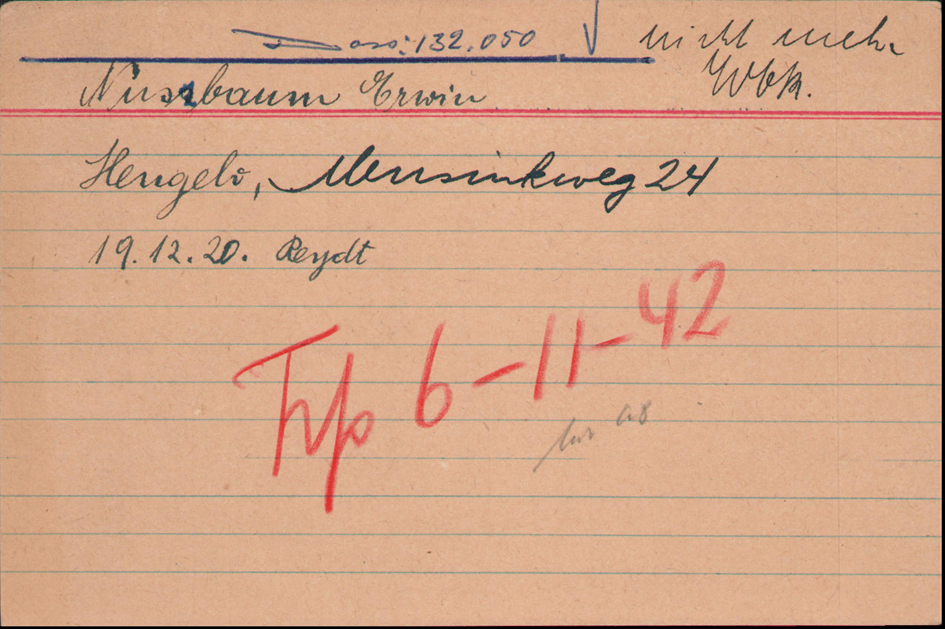 Doss: 132.050
nicht mehr
Wbk.
Nussbaum Erwin
Hengelo, Mensinkweg 24
19.12.20. Reydt
Trp 6-11-42